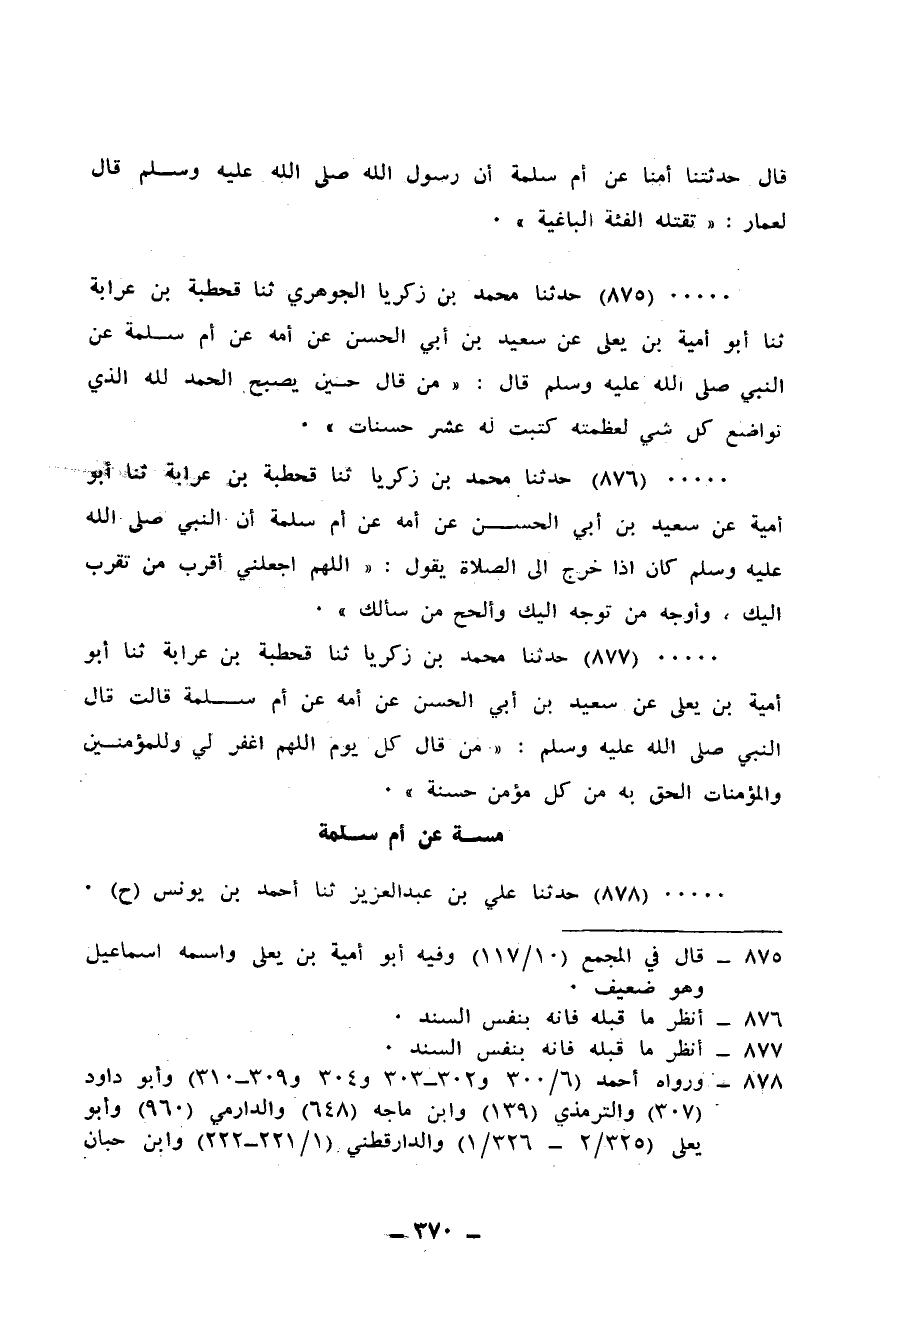 قال حدثتنا أمنا عن أم سلمة أن رسول الله صلى الله عليه وسلم قال
لعمار : « تقتله الفئة الباغية » ٠
٠٠٠٠٠ (٨٧٥) حدثنا محمد بن زكريا الجوهري ثنا قحطبة بن عرابة
ثنا أبو أمية بن يعلى عن سعيد بن أبي الحسن عن أمه عن أم سلمة عن
النبي صلى الله عليه وسلم قال : « من قال حين يصبح الحمد لله الذي
تواضع كل شي لعظمته كتبت له عشر حسنات » ٠
٠٠٠٠٠ (٨٧٦) حدثنا محمد بن زكريا ثنا قحطبة بن عرابة ثنا أبو
أمية عن سعيد بن أبي الحسن عن أمه عن أم سلمة أن النبي صلى الله
عليه وسلم كان اذا خرج الى الصلاة يقول : « اللهم اجعلني أقرب من تقرب
اليك ، وأوجه من توجه اليك وألحح من سألك » ٠
٠٠٠٠٠ (٨٧٧) حدثنا محمد بن زكريا ثنا قحطبة بن عرابة ثنا أبو
أمية بن يعلى عن سعيد بن أبي الحسن عن أمه عن أم سلمة قالت قال
النبي صلى الله عليه وسلم : « من قال كل يوم اللهم اغفر لي وللمؤمنين
والمؤمنات الحق به من كل مؤمن حسنة » ٠
مسة عن أم سلمة
٠٠٠٠٠ (٨٧٨) حدثنا علي بن عبدالعزيز ثنا أحمد بن يونس (ح) ٠
٨٧٥ ـ قال في المجمع (١١٧/١٠) وفيه أبو أمية بن يعلى واسمه اسماعيل
وهو ضعيف ٠
٨٧٦ ـ أنظر ما قبله فانه بنفس السند ٠
٨٧٧ ـ أنظر ما قبله فانه بنفس السند ٠
٨٧٨ ـ ورواه أحمد (٣٠٠/٦ و٣٠٢ـ٣٠٣ و٣٠٤ و٣٠٩ـ٣١٠) وأبو داود
(٣٠٧) والترمذي (١٣٩) وابن ماجه (٦٤٨) والدارمي (٩٦٠) وأبو
يعلى (٢/٣٢٥ ـ ١/٣٢٦) والدارقطني (٢٢١/١ـ٢٢٢) وابن حبان
ـ ٣٧٠ ـ